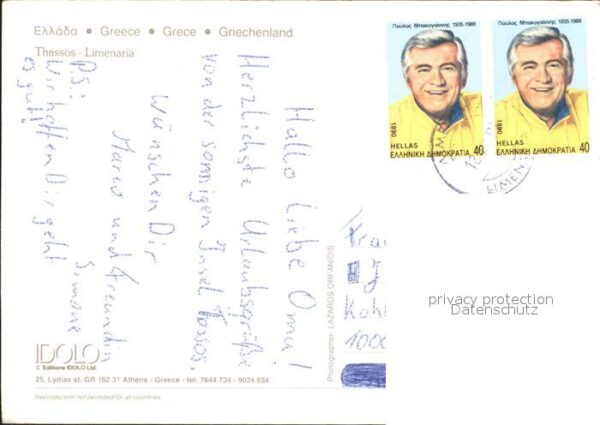 Ελλάδα • Greece • Grece • Griechenland
Thassos - Limenaria
Hallo Liebe Oma!
Herzlichste Urlaubsgrüße
von der sonnigen Insel Tassos.
Wünschen Dir
Marco und Freundin
Simone
PS:
Wir hoffen Dir geht
es gut!
Παύλος Μπακογιάννης 1935-1989
1990
HELLAS
ΕΛΛΗΝΙΚΗ ΔΗΜΟΚΡΑΤΙΑ 40
Παύλος Μπακογιάννης 1935-1989
1990
HELLAS
ΕΛΛΗΝΙΚΗ ΔΗΜΟΚΡΑΤΙΑ 40
Photographer: LAZAROS ORFANIDIS
privacy protection
Datenschutz
IDOLO
© Editions IDOLO Ltd.
25, Lydias st GR 162 31 Athens - Greece - tel: 7644 734 - 9024 654
Reproduction not permitted for all countries